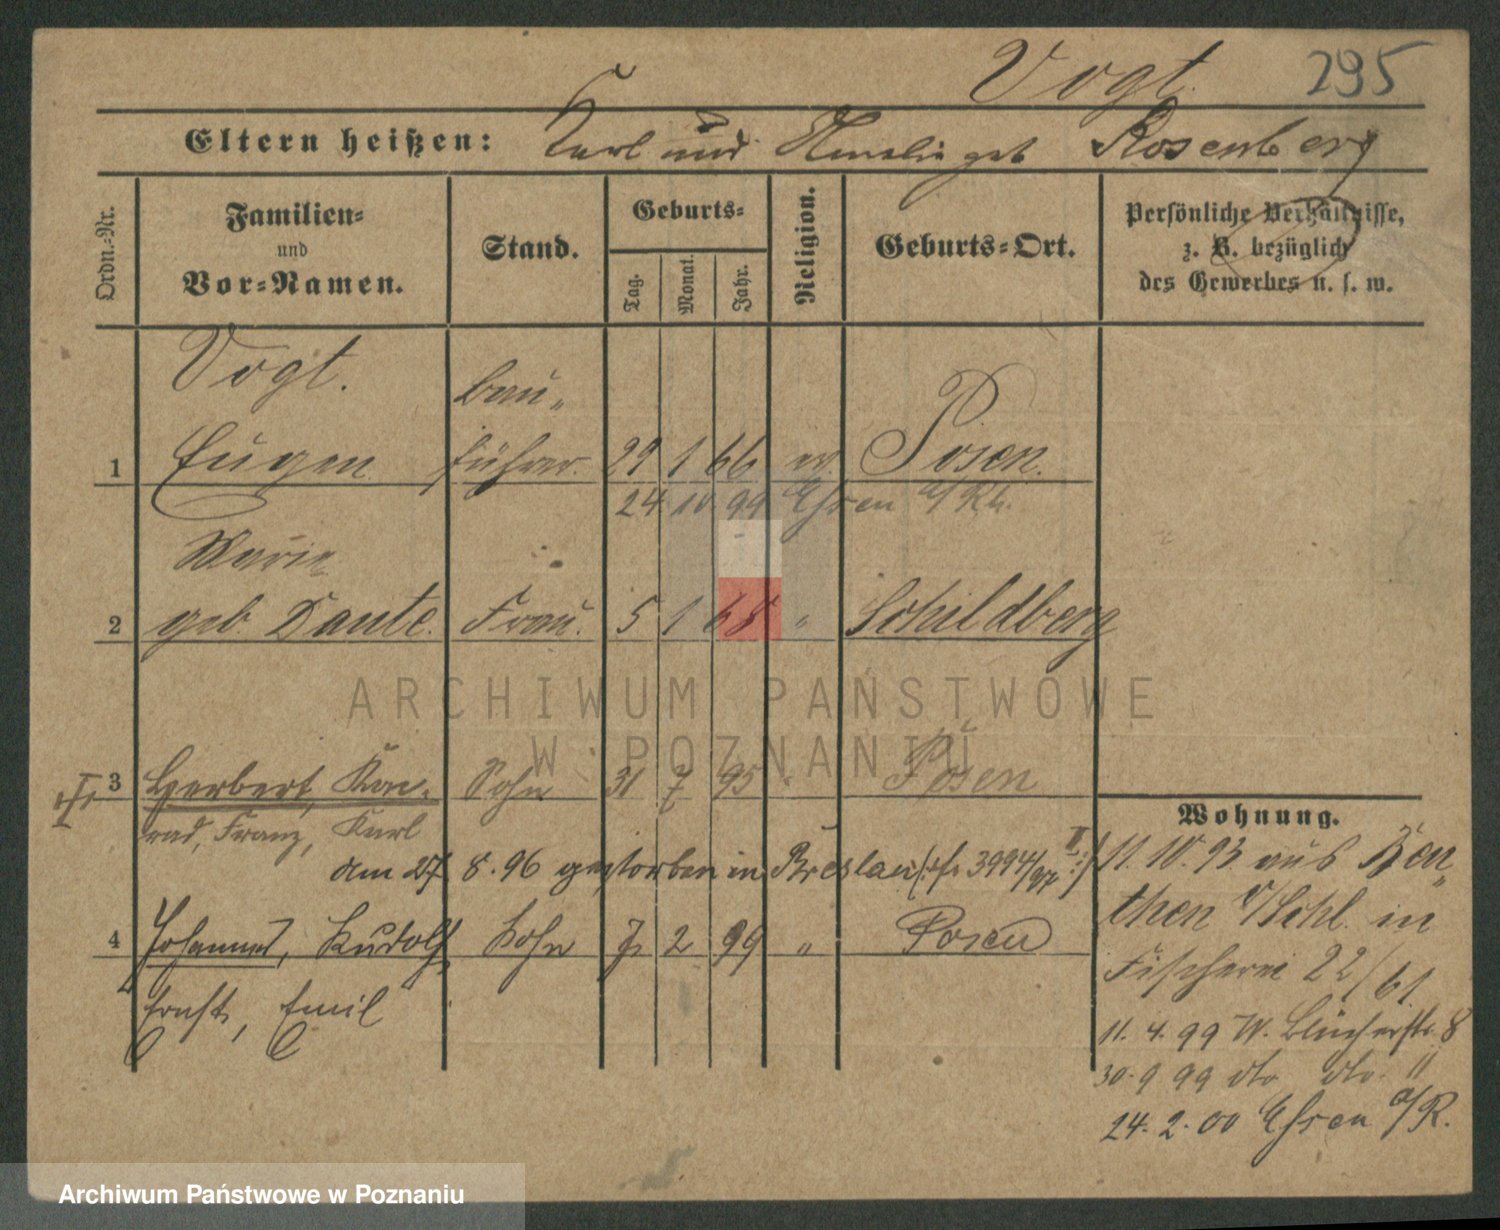 Vogt. 295
Eltern heißen: Karl und Amalie geb Rosenberg
Ordn.=Nr.
Familien=
und
Vor=Namen.
Stand.
Geburts=
Tag.
Monat.
Jahr.
Religion.
Geburts=Ort.
Persönliche Verhältnisse,
z. B. bezüglich
des Gewerbes u. s. w.
Vogt.
Bau„
1 Eugen führer. 29 1 66 ev. Posen.
24 10 99 Ehren a/Rh.
Marie
2 geb. Daute. Frau. 5 1 68 " Schildberg
ARCHIWUM PAŃSTWOWE
W POZNANIU
3 Herbert, Kon= Sohn 31 7 95 " Posen
rad, Franz, Karl
am 27. 8. 96 gestorben in Breslau 3994/97 II
4 Johannes, Rudolf, Sohn 7 2 99 " Posen
Ernst, Emil
Wohnung.
11. 10. 93 aus Beu„
then O/Schl. in
Fischerei 22/61
11. 4. 99 W. Blücherstr. 8
30. 9 99 dto dto. 11
24. 2. 00 Ehren a/R.
Archiwum Państwowe w Poznaniu